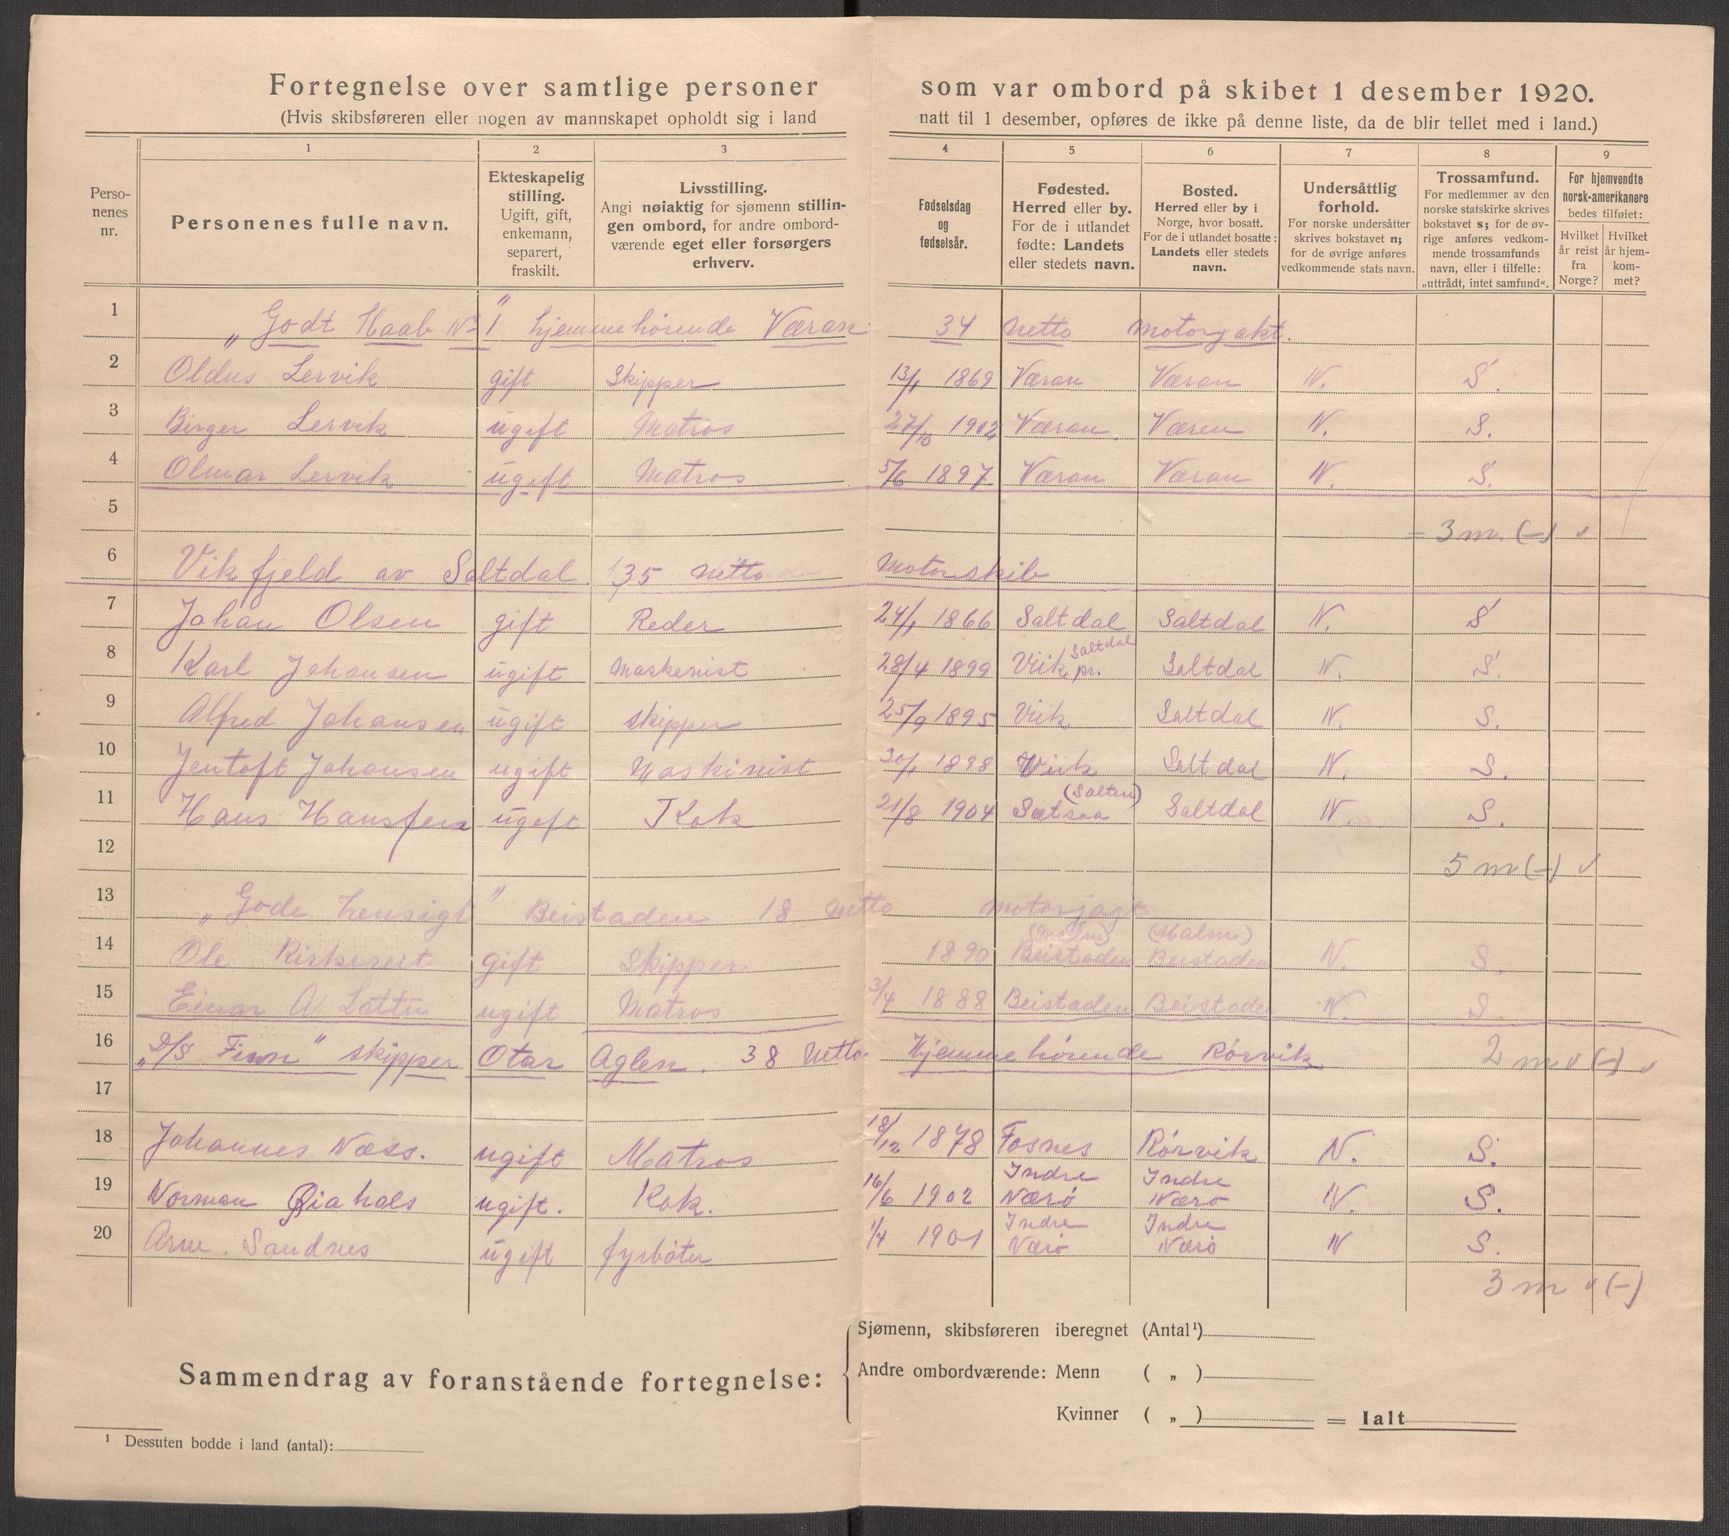 Fortegnelse over samtlige personer som var ombord på skibet 1 desember 1920.
(Hvis skibsføreren eller nogen av mannskapet opholdt sig i land natt til 1 desember, opføres de ikke på denne liste, da de blir tellet med i land.)
1 2 3 4 5 6 7 8 9
Perso-
nenes
nr.
Personenes fulle navn.
Ekteskapelig
stilling.
Ugift, gift,
enkemann,
separert,
fraskilt.
Livsstilling.
Angi nøiaktig for sjømenn stillin-
gen ombord, for andre ombord-
værende eget eller forsørgers
erhverv.
Fødselsdag
og
fødselsår.
Fødested.
Herred eller by.
For de i utlandet
fødte: Landets
eller stedets navn.
Bosted.
Herred eller by i
Norge, hvor bosatt.
For de i utlandet bosatte:
Landets eller stedets
navn.
Undersåttlig
forhold.
For norske undersåtter
skrives bokstavet n;
for de øvrige anføres
vedkommende stats navn.
Trossamfund.
For medlemmer av den
norske statskirke skrives
bokstavet s; for de øv-
rige anføres vedkom-
mende trossamfunds
navn, eller i tilfelle:
„uttrådt, intet samfund“.
For hjemvendte
norsk-amerikanere
bedes tilføiet:
Hvilket
år reist
fra
Norge?
Hvilket
år hjem-
kom-
met?
1 „Godt Haab No 1" hjemmehørende Væran 34 netto motorjakt.
2 Oldus Lervik gift Skipper 13/1 1869 Væran Væran N. S.
3 Birger Lervik ugift Matros 27/10 1902 Væran. Væran N. S.
4 Olmar Lervik ugift Matros 5/6 1897 Væran Væran N. S.
5 3 m (-)
6 Vikfjeld av Saltdal 135 netto Motorskib
7 Johan Olsen gift Reder 24/1 1866 Saltdal Saltdal N. S
8 Karl Johansen ugift Maskenist 28/4 1899 Viik Saltdal pr. Saltdal N. S.
9 Alfred Johansen ugift skipper 25/9 1895 Viik Saltdal N. S.
10 Jentoft Johansen ugift Maskinist 30/1 1898 Viik Saltdal N. S.
11 Hans ugift Kok 21/8 1904 (Salten) Saltdal N. S.
12 5 m (-)
13 „Gode Hensigt" Beistaden 18 netto motorjagt
14 Ole gift Skipper 1890 (Malm) Beistaden (Malm) Beistaden N. S.
15 Einar A ugift Matros 3/4 1888 Beistaden Beistaden N. S.
16 „D/S Finn" skipper Otar Aglen. 38 Netto. Hjemmehørende Rørvik 2 m (-)
17
18 Johannes Næss. ugift Matros 18/12 1878 Fosnes Rørvik N. S.
19 Norman ugift. Kok. 16/6 1902 Indre Nærø Indre Nærø N. S.
20 Arne. Sandnes ugift fyrbøter 1/4 1901 Indre Nærø Indre Nærø N S.
3 m (-)
Sammendrag av foranstående fortegnelse:
Sjømenn, skibsføreren iberegnet (Antal¹)
Andre ombordværende: Menn ( „ )
Kvinner ( „ ) = Ialt
¹ Dessuten bodde i land (antal):